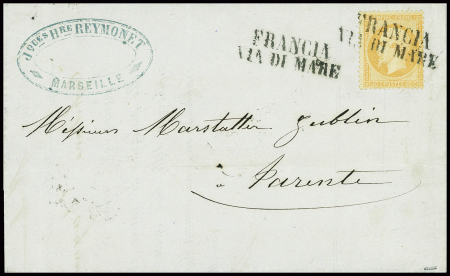 Jques Hre REYMONET
MARSEILLE
FRANCIA
VIA DI MARE
FRANCIA
VIA DI MARE
Messieurs Marstaller Gublin
à Tarente